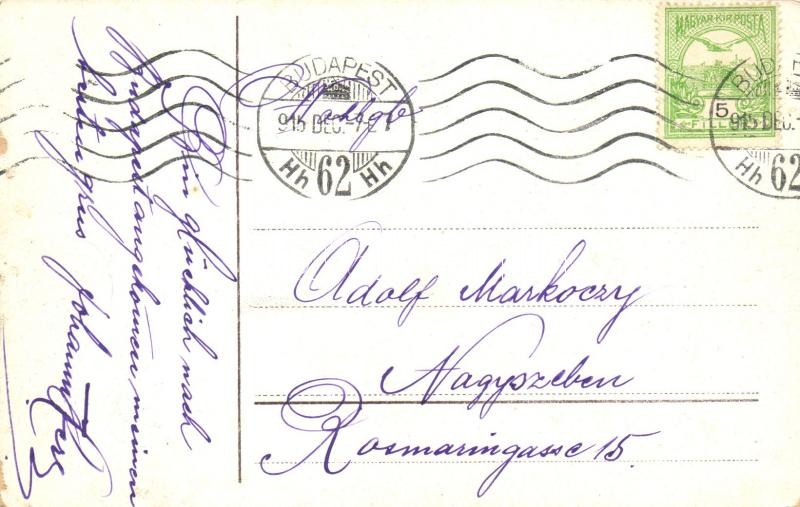 Bin glücklich nach
Budapest angekomen meinen
besten grus Johann
MAGYAR·KIR·POSTA
5
FILLÉR
BUDAPEST
915 DEC.-7.E 7
Hh 62 Hh
BUD
915 DEC.-7.E
Hh 62
Adolf Markoczy
Nagyszeben
Rosmaringasse 15.